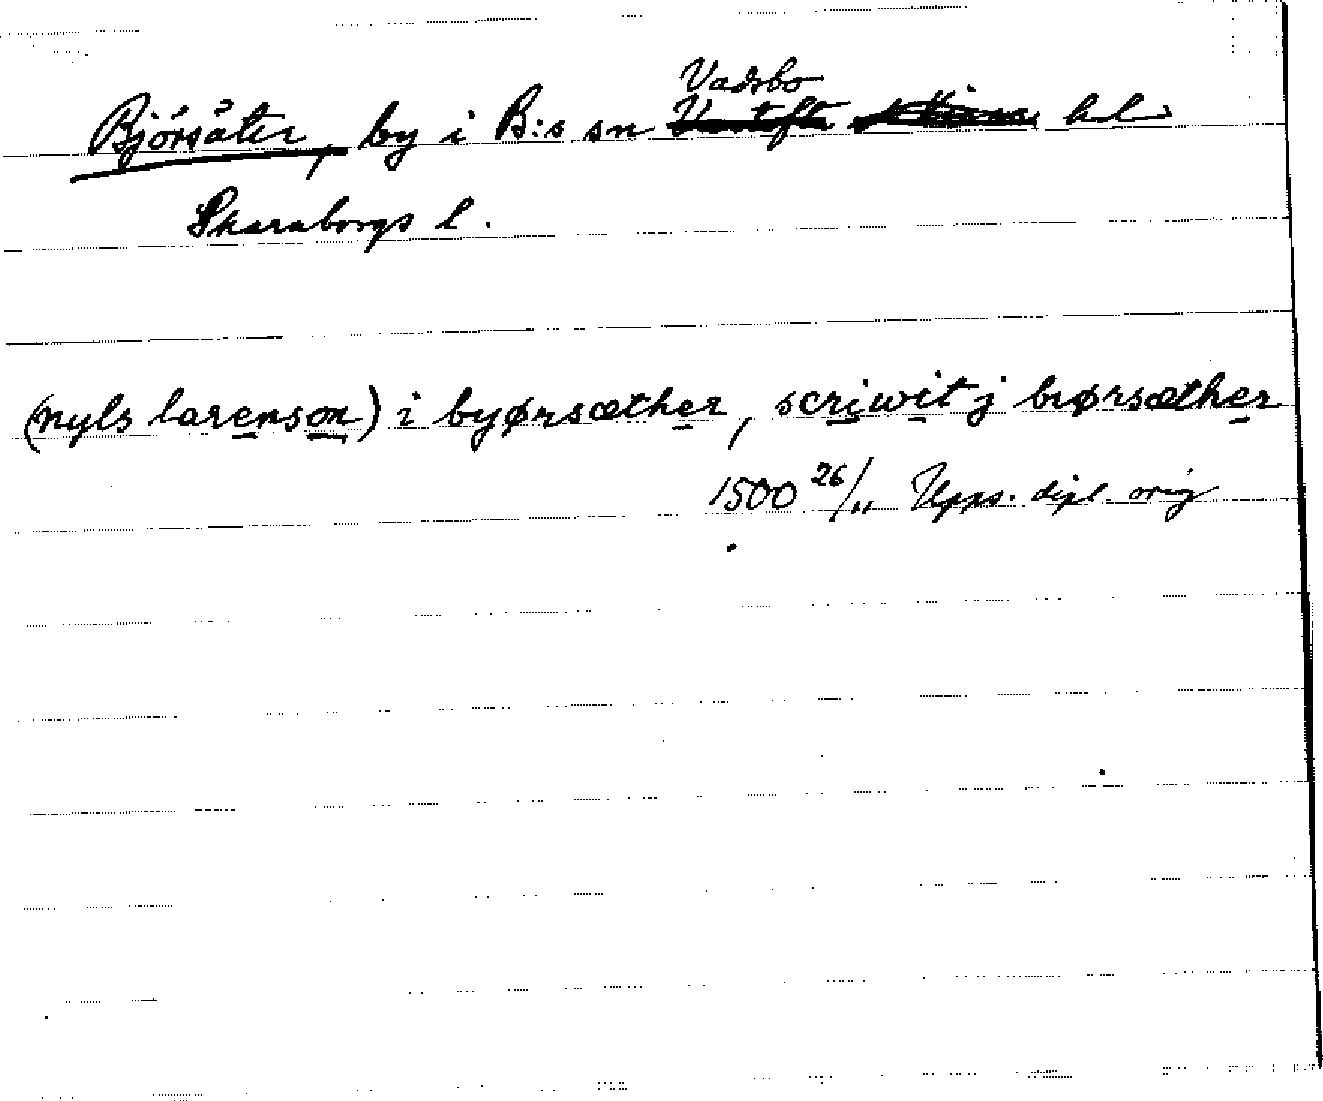 Björsäter, by i B:s sn Vadsbo hd
Skaraborgs l.
(nyls larenson) i byørsæther, scriwit j biørsæther
1500 26/11 Upps. dipl. orig